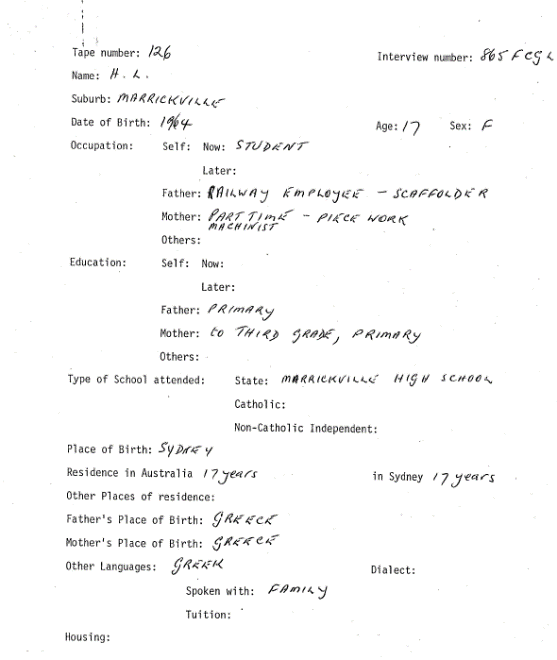 Tape number: 126 Interview number: 865 FCGL
Name: H. L.
Suburb: MARRICKVILLE
Date of Birth: 1964 Age: 17 Sex: F
Occupation: Self: Now: STUDENT
Later:
Father: RAILWAY EMPLOYEE - SCAFFOLDER
Mother: PART TIME - PIECE WORK
MACHINIST
Others:
Education: Self: Now:
Later:
Father: PRIMARY
Mother: to THIRD GRADE, PRIMARY
Others:
Type of School attended: State: MARRICKVILLE HIGH SCHOOL
Catholic:
Non-Catholic Independent:
Place of Birth: SYDNEY
Residence in Australia 17 years in Sydney 17 years
Other Places of residence:
Father's Place of Birth: GREECE
Mother's Place of Birth: GREECE
Other Languages: GREEK Dialect:
Spoken with: FAMILY
Tuition:
Housing: